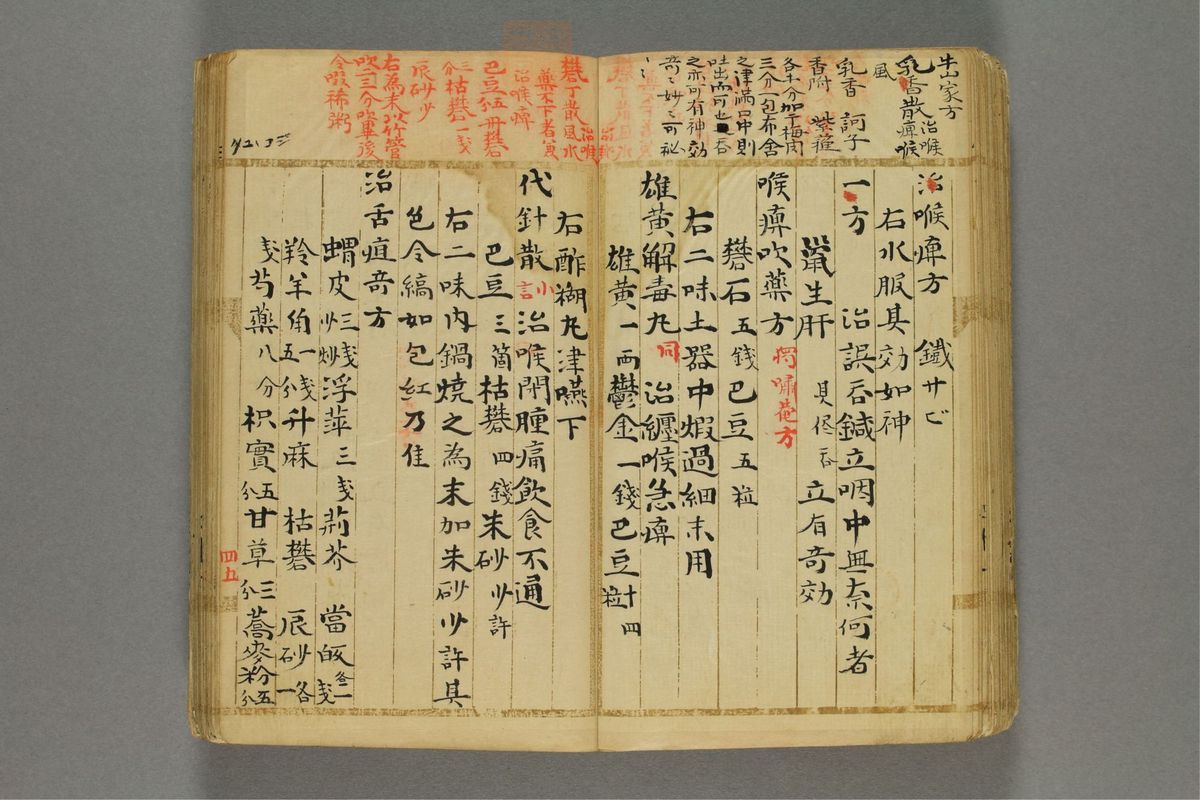 牛山家方
乳香散 治喉痺喉
風
乳香 訶子
香附 紫
各十分加干梅肉
三分一包布含
之津満口中則
吐出而可也吞
之亦可有神効
奇々妙々可秘
治喉痺方 鐵廿ビ
右水服其効如神
一方 治誤吞鍼立咽中無奈何者
鼠生肝 吞立有奇効
喉痺吹藥方 獨嘯菴方
礬石五錢巴豆五粒
右二味土器中煆過細末用
雄黄解毒丸 同 治纏喉急痺
雄黄一両鬱金一錢巴豆十四粒
礬丁散 治喉風水
藥不下者
治喉痺
巴豆伍冊礬
三分枯礬一戔
辰砂少
右為末以竹管
吹三分吹畢後
令啜稀粥
右酢糊丸津嚥下
代針散 小言 治喉閉腫痛飲食不通
巴豆三箇枯礬四錢朱砂少許
右二味内鍋燒之為末加朱砂少許其
色令縞如包紅乃佳
治舌疽奇方
蝟皮三戔炒浮萍三戔荊芥 當皈各一戔
羚羊角一戔五分升麻 枯礬 辰砂各一
戔芍藥八分枳實五分甘草三分蕎麥粉五分
四五